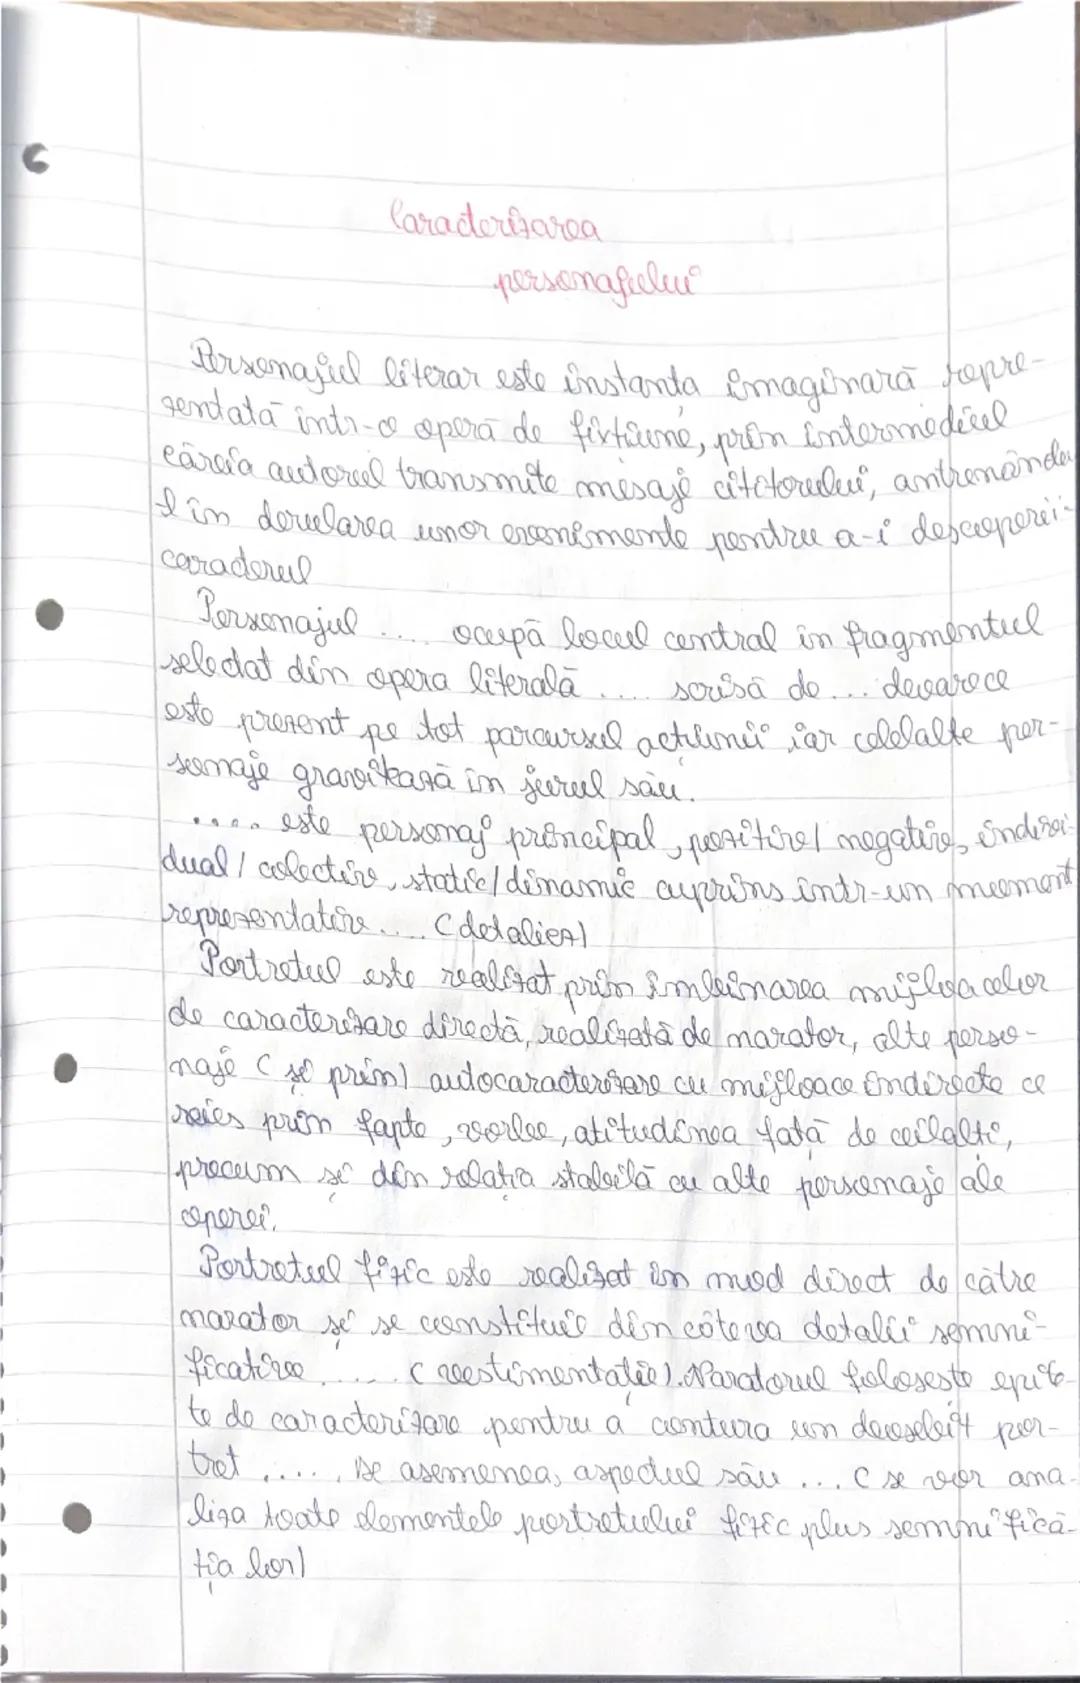 Caracterizarea
personajului
Personajul literar este instanța imaginară repre-
zentată într-o operă de ficțiune, prin intermediul
căreia autorul transmite mesaje cititorului, antrenându-
l în derularea unor evenimente pentru a-i descoperi-
caracterul
Personajul .... ocupă locul central în fragmentul
selectat din opera literală .... scrisă de ... deoarece
este prezent pe tot parcursul acțiunii iar celelalte per-
sonaje gravitează în jurul său.
.... este personaj principal, pozitiv / negativ, indivi-
dual / colectiv, static / dinamic cuprins într-un moment
reprezentativ .... (detaliez)
Portretul este realizat prin îmbinarea mijloacelor
de caracterizare directă, realizată de narator, alte perso-
naje (și prin) autocaracterizare cu mijloace indirecte ce
reies prin fapte, vorbe, atitudinea față de ceilalți,
precum și din relația stabilă cu alte personaje ale
operei.
Portretul fizic este realizat în mod direct de către
narator și se constituie din câteva detalii semni-
ficative ..... (vestimentație). Naratorul folosește epite-
te de caracterizare pentru a contura un deosebit por-
tret ...., De asemenea, aspectul său ... (se vor ana-
liza toate elementele portretului fizic plus semnifica-
ția lor)